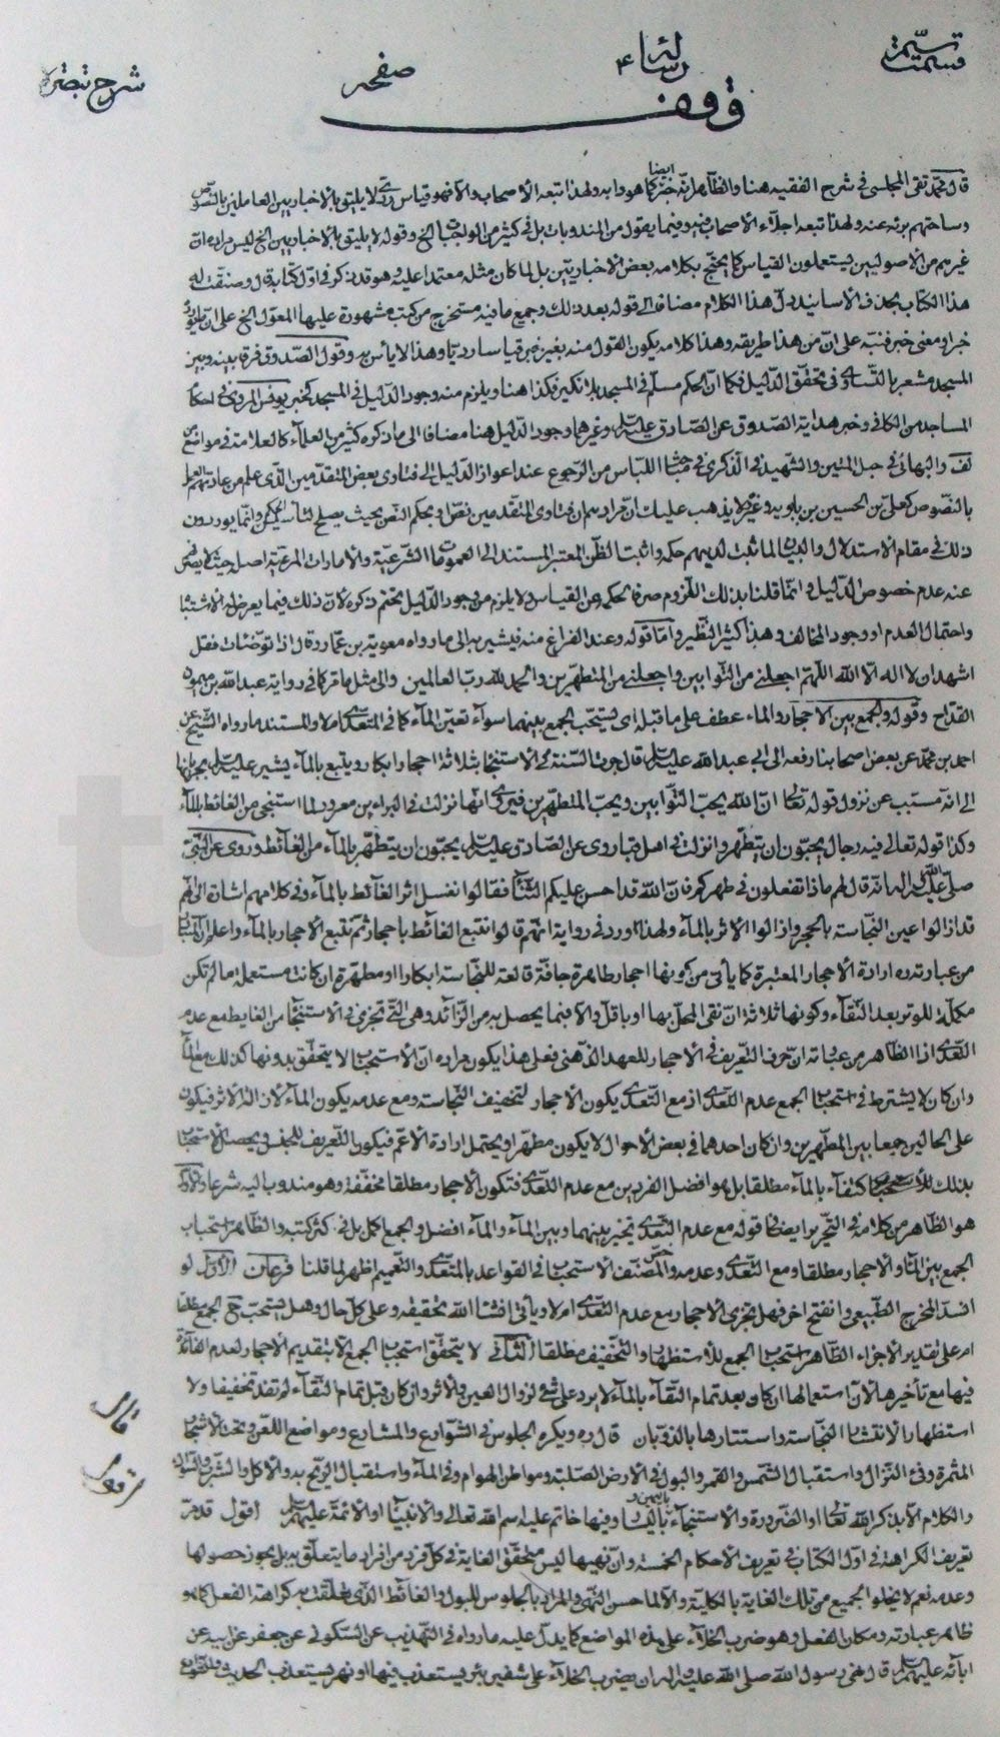 رسالة ۴
صفحه
شرح تبصرة
وقف
قال محمد تقى المجلسى فى شرح الفقيه هنا والظاهر انه خبر كما هو دابه ولهذا تبعه الأصحاب والا فهو قياس ردى لا يليق بالأخباريين العاملين بالنصوص
وساحتهم بريئه عنه ولهذا تبعه اجلاء الأصحاب فيه وفيما يقول من المندوبات بل فى كثير من الواجبات الخ وقوله لا يليق بالأخباريين الخ ليس مراده ان
غيرهم من الأصوليين يستعملون القياس كما يحتج بكلامه بعض الأخباريين بل لما كان مثله معتمدا عليه وهو قد ذكر فى اول كتابه قال وصنفت له
هذا الكتاب بحذف الأسانيد دل هذا الكلام مضافا الى قوله بعد ذلك وجميع ما فيه مستخرج من كتب مشهورة عليها المعول الخ على ان
خبرا ومعنى خبر فنبه على ان من هذا طريقه وهذا كلامه يكون القول منه بغير خبر قياسا رديا وهذا لا باس به وقول الصدوق فرق بينه وبين
المسجد مشعر بالتساوى فى تحقق الدليل فكما ان الحكم مسلم فى المسجد بلا نكير فكذا هنا ويلزم منه وجود الدليل فى المسجد كخبر يونس المروى فى احكام
المساجد من الكافى وخبر هداية الصدوق عن الصادق عليه السلام وغيرهما وجود الدليل هنا مضافا الى ما ذكره كثير من العلماء كالعلامة فى مواضع من
لف والبهائى فى حبل المتين والشهيد فى الذكرى فى مبحث اللباس من الرجوع عند اعواز الدليل الى فتاوى بعض المتقدمين الذى علم من عادتهم العمل
بالنصوص كعلى بن الحسين بن بابويه وغيره لا يذهب عليك ان مرادهم ان فتاوى المتقدمين نص او بحكم النص بحيث يصلح لتأسيس الحكم وانما يوردون
ذلك فى مقام الاستدلال والبيان لما ثبت لديهم حكمه واثبت الظن المعتبر المستند الى العمومات الشرعية والامارات المرعية اصله
عنه عدم خصوص الدليل وانما قلنا بذلك اللزوم صرفا لحكمه عن القياس ولا يلزم من وجود الدليل تحتم ذكره لان ذلك فيما يعرض له الاشتباه
واحتمال العدم او وجود المخالف وهذا كثير النظير واما قوله وعند الفراغ منه فيشير به الى ما رواه معوية بن عمار وقال اذا توضئات فقل
اشهد ان لا اله الا الله اللهم اجعلنى من التوابين واجعلنى من المتطهرين والحمد لله رب العالمين والى مثل ما مر كما فى رواية عبد الله بن ميمون
القداح وقوله والجمع بين الاحجار والماء عطف على ما قبله اى يستحب الجمع بينهما سواء تعين الماء كما فى المتعدى ام لا والمستند ما رواه الشيخ عن
احمد بن محمد عن بعض اصحابنا رفعه الى ابى عبد الله عليه السلام قال جرت السنة فى الأستنجاء بثلاثة احجار ابكار ويتبع بالماء يشير عليه السلام بجريانها
الى انه مسبب عن نزول قوله تعالى ان الله يحب التوابين ويحب المتطهرين فروى انها نزلت فى البراء بن معرور لما استنجى من الغائط بالماء
وكذا قوله تعالى فيه رجال يحبون ان يتطهروا نزلت فى اهل قبا روى عن الصادق عليه السلام يحبون ان يتطهر بالماء من الغائط وروى عن النبى
صلى الله عليه واله انه قال لهم ماذا تفعلون فى طهركم فان الله قد احسن عليكم الثناء فقالوا نغسل اثر الغائط بالماء وفى كلامهم اشارة الى انهم
قد ازالوا عين النجاسة بالحجر وازالوا الاثر بالماء ولهذا ورد فى رواية انهم قالوا نتبع الغائط باحجار ثم نتبع الأحجار بالماء واعلم ان
من عبارته ره ارادة الأحجار المعتبرة كما يأتى من كونها احجار طاهرة جافة قالعة للنجاسة ابكارا او مطهرة ان كانت مستعملة ما لم تكن
مكملة للوتر بعد النقاء وكونها ثلاثة ان نقى المحل بها او باقل والا فبما يحصل به من الزائد وهى التى تجزى فى الأستنجاء من الغايط مع عدم
التعدى اذ الظاهر من عبارته ان حرف التعريف فى الأحجار للعهد الذهنى فعلى هذا يكون مراده ان الأستحباب لا يتحقق بدونها كذلك مطلقا
وان كان لا يشترط فى استحباب الجمع عدم التعدى اذ مع التعدى يكون الأحجار لتخفيف النجاسة ومع عدمه يكون الماء لازالة الاثر فيكون
على الحالين جمعا بين المطهرين وان كان احدهما فى بعض الأحوال لا يكون مطهرا ويحتمل ارادة الأعم فيكون التعريف للجنس فيحصل الأستحباب
بذلك اكتفاء بالماء مطلقا بل هو افضل الفردين مع عدم التعدى فتكون الأحجار مطلقا مخففة وهو مندوب اليه شرعا
هو الظاهر من كلامه فى التحرير ايضا قوله مع عدم التعدى تخير بينهما وبين الماء والماء افضل والجمع اكمل بل فى اكثر كتبه والظاهر استحباب
الجمع بين الماء والأحجار مطلقا ومع التعدى وعدمه وخص المصنف الأستحباب فى القواعد بالمتعدى والتعميم اظهر لما قلنا فرعان الاول لو
انسد المخرج الطبيعى وانفتح اخر فهل تجزى الأحجار مع عدم التعدى ام لا ويأتى انشاء الله تحقيقه وعلى كل حال وهل يستحب الجمع مطلقا
ام على تقدير الأجزاء الظاهر استحباب الجمع للأستظهار والتخفيف مطلقا الثانى لا يتحقق استحباب الجمع الا بتقديم الأحجار لعدم الفائدة
فيها مع تأخيرها لأن استعمالها ان كان بعد تمام النقاء بالماء لا يرد على شئ لزوال العين والأثر وان كان قبل تمام النقاء لم تفد تخفيفا ولا
استظهارا لانتشار النجاسة واستتارها بالذوبان قال ره ويكره الجلوس فى الشوارع والمشارع ومواضع اللعن وتحت الأشجار
المثمرة وفئ النزال واستقبال الشمس والقمر والبول فى الأرض الصلبة ومواطن الهوام وفى الماء واستقبال الريح به والأكل والشرب والسواك
والكلام الا بذكر الله تعالى او الضرورة والأستنجاء باليمين وباليسار وفيها خاتم عليه اسم الله تعالى والأنبياء او الأئمة عليهم السلام اقول قد مر
تعريف الكراهة فى اول الكتاب فى تعريف الأحكام الخمسة وان نهيها ليس متحقق الغاية فى كل فرد من افراد ما يتعلق به بل يجوز حصولها
وعدمه نعم لا يخلو الجميع من تلك الغاية بالكلية والا لما حسن النهى والمراد بالجلوس للبول والغائط الذى تعلقت به كراهة الفعل كما هو
ظاهر عبارته ومكان الفعل وهو ضرب الخلاء على هذه المواضع كما يدل عليه ما رواه فى التهذيب عن السكونى عن جعفر عن ابيه عن
ابائه عليهم السلام قال نهى رسول الله صلى الله عليه واله ان يضرب الخلاء على شفير بئر يستعذب فيها او نهر يستعذب الحديث
قال